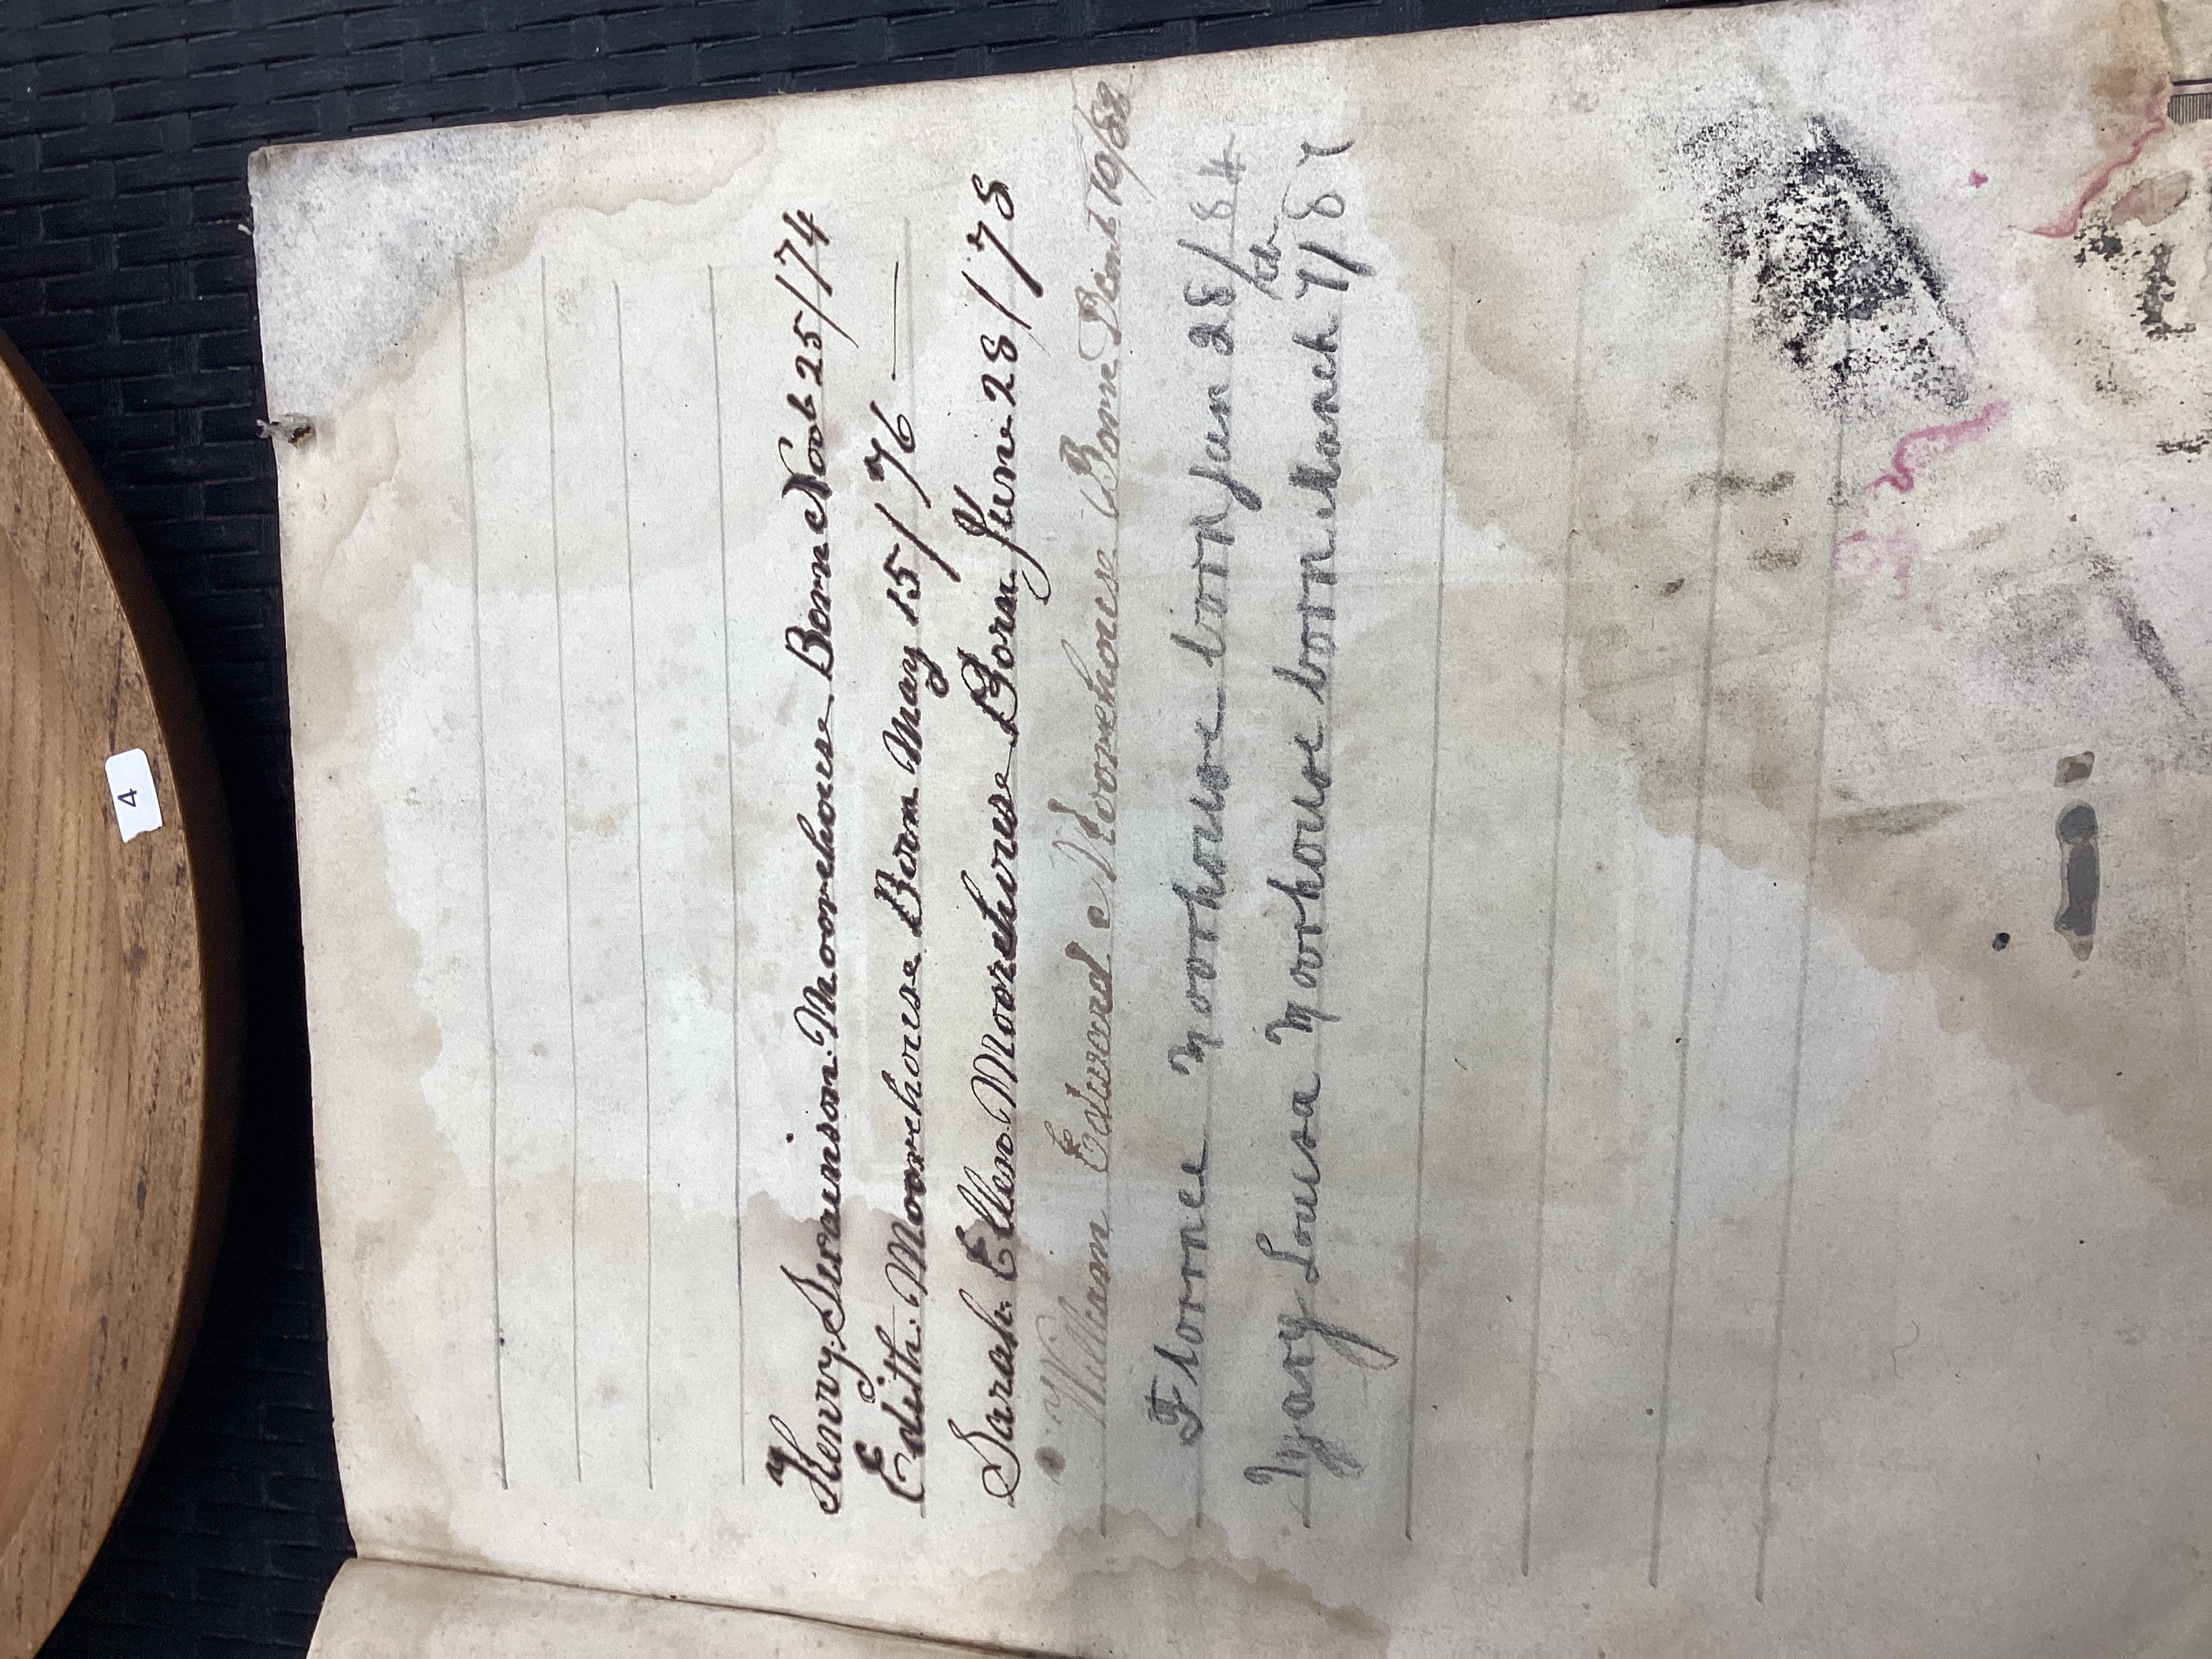 Henry Swainson Moorehouse Born Nov 25/74
Edith. Moorehouse Born May 15/76
Sarah Ellen Moorehouse Born June 28/78
William Edward Moorehouse Born Decmb 10/82
Florence Moorhouse born Jan 28/84
Mary Louisa Moorhouse born March 7th/87
4